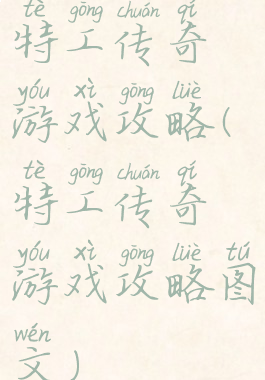 tè gōng chuán qí
特工传奇
yóu xì gōng lüè
游戏攻略(
tè gōng chuán qí
特工传奇
yóu xì gōng lüè tú
游戏攻略图
wén
文)